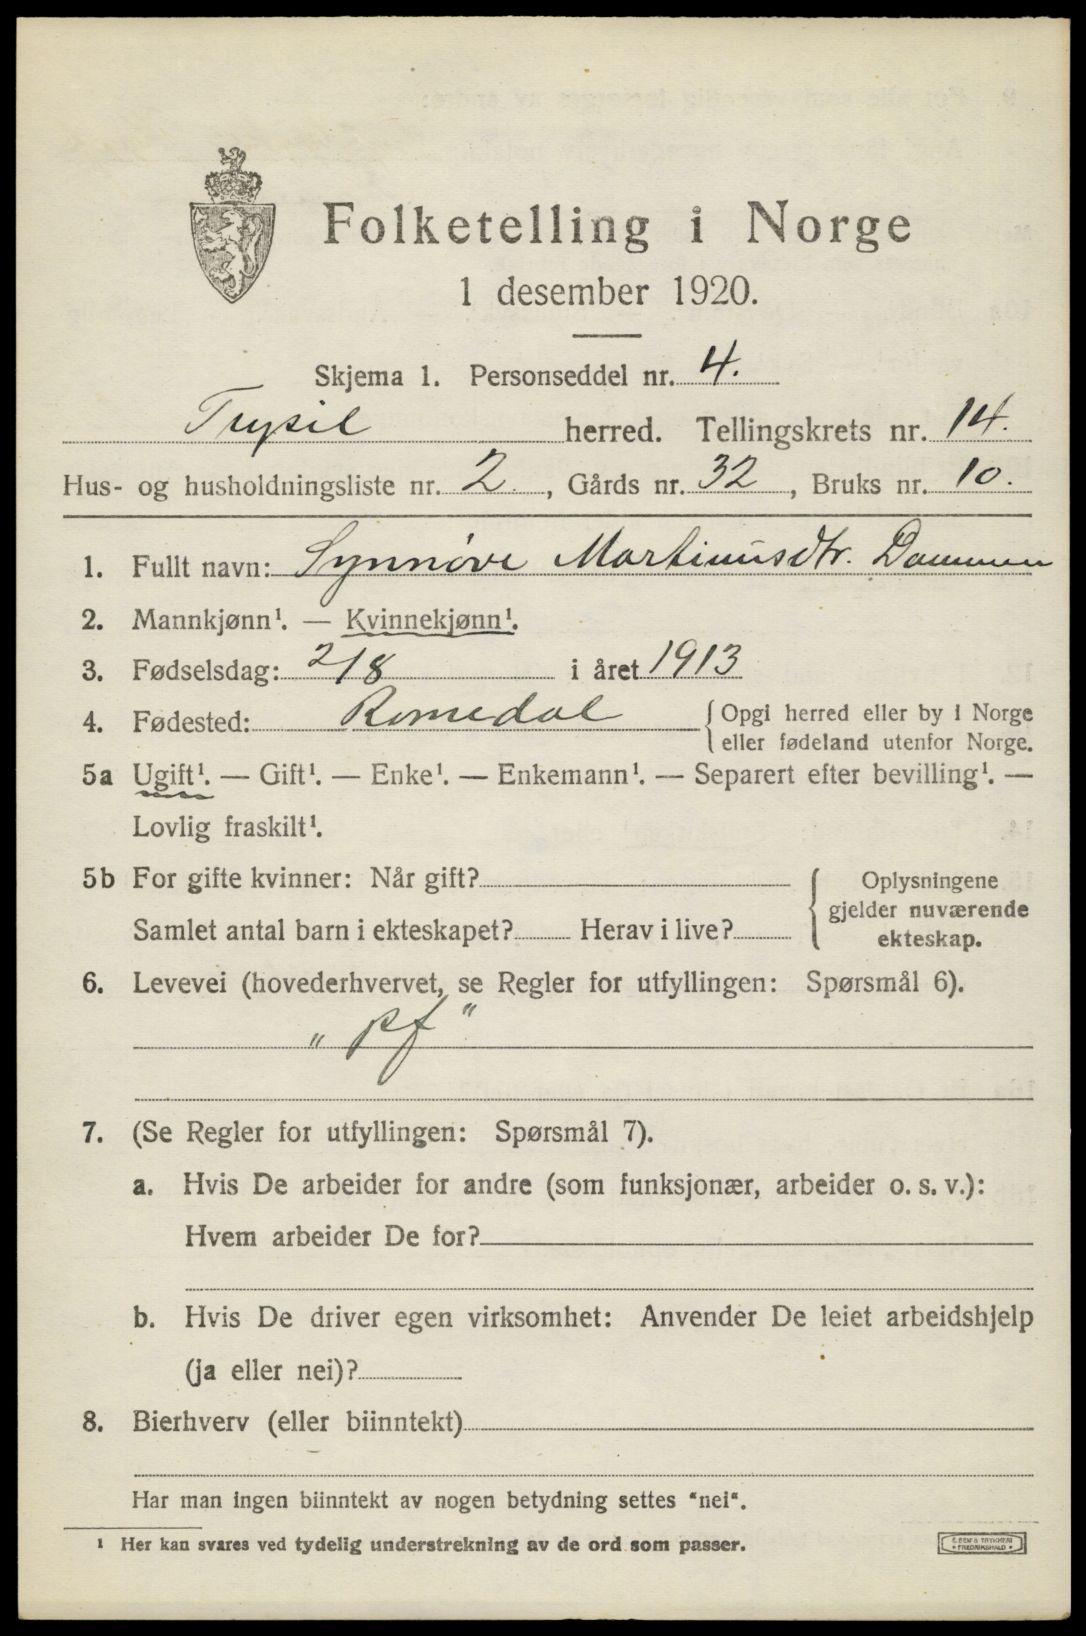 Folketelling i Norge
1 desember 1920.
Skjema 1. Personseddel nr. 4.
Trysil herred. Tellingskrets nr. 14.
Hus- og husholdningsliste nr. 2., Gårds nr. 32, Bruks nr. 10.
1. Fullt navn: Synnøve Martinusdtr. Dammen
2. Mannkjønn¹. — Kvinnekjønn¹.
3. Fødselsdag: 2/8 i året 1913
4. Fødested: Romedal {Opgi herred eller by i Norge
eller fødeland utenfor Norge.
5a Ugift¹. — Gift¹. — Enke¹. — Enkemann¹. — Separert efter bevilling¹. —
Lovlig fraskilt¹.
5b For gifte kvinner: Når gift?
Samlet antal barn i ekteskapet? Herav i live?
{Oplysningene
gjelder nuværende
ekteskap.
6. Levevei (hovederhvervet, se Regler for utfyllingen: Spørsmål 6).
„ pf "
7. (Se Regler for utfyllingen: Spørsmål 7).
a. Hvis De arbeider for andre (som funksjonær, arbeider o. s. v.):
Hvem arbeider De for?
b. Hvis De driver egen virksomhet: Anvender De leiet arbeidshjelp
(ja eller nei)?
8. Bierhverv (eller biinntekt)
Har man ingen biinntekt av nogen betydning settes "nei".
¹ Her kan svares ved tydelig understrekning av de ord som passer.